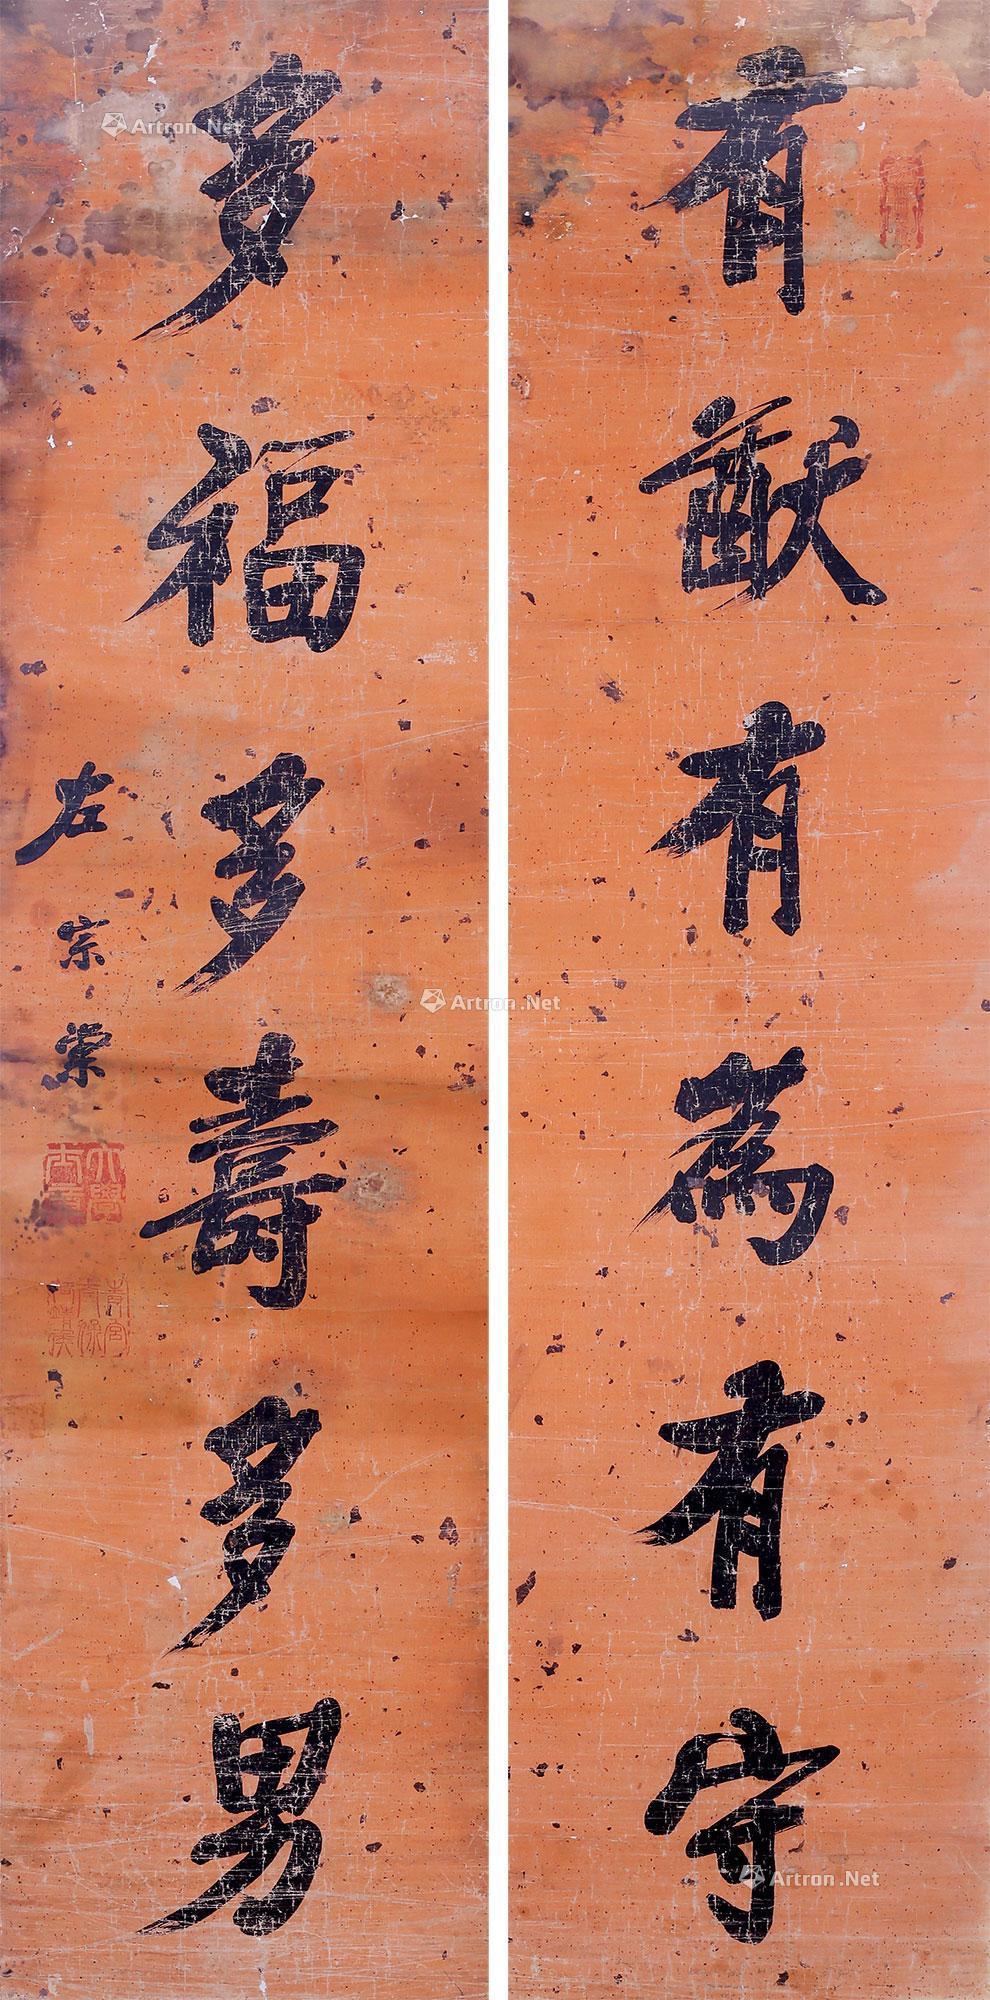 有猷有為有守
多福多壽多男
左宗棠
Artron.Net
Artron.Net
Artron.Net